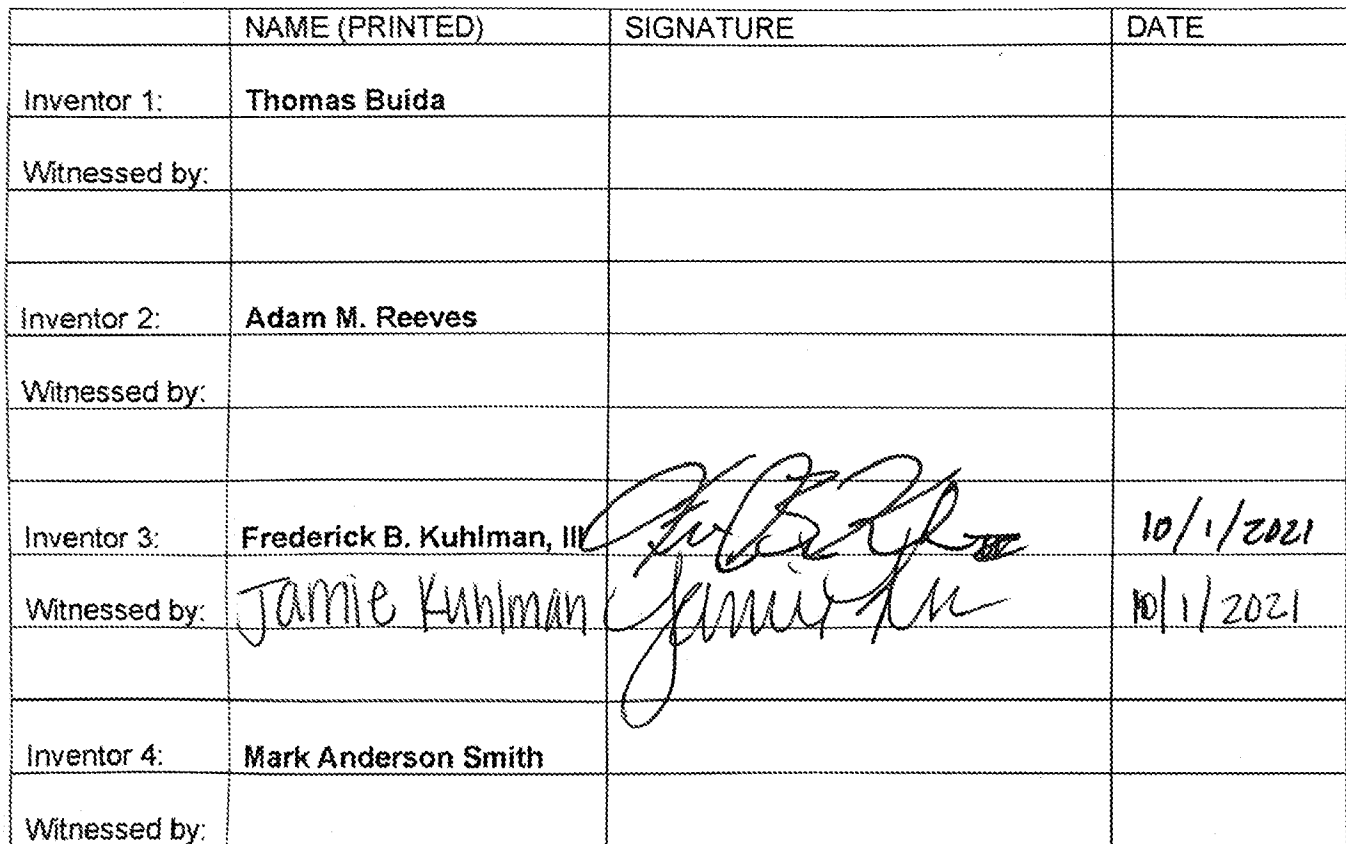 NAME (PRINTED) SIGNATURE DATE
Inventor 1: Thomas Buida
Witnessed by:
Inventor 2: Adam M. Reeves
Witnessed by:
Inventor 3: Frederick B. Kuhlman, III 10/1/2021
Witnessed by: Jamie Kuhlman Jamie 10/1/2021
Inventor 4: Mark Anderson Smith
Witnessed by: